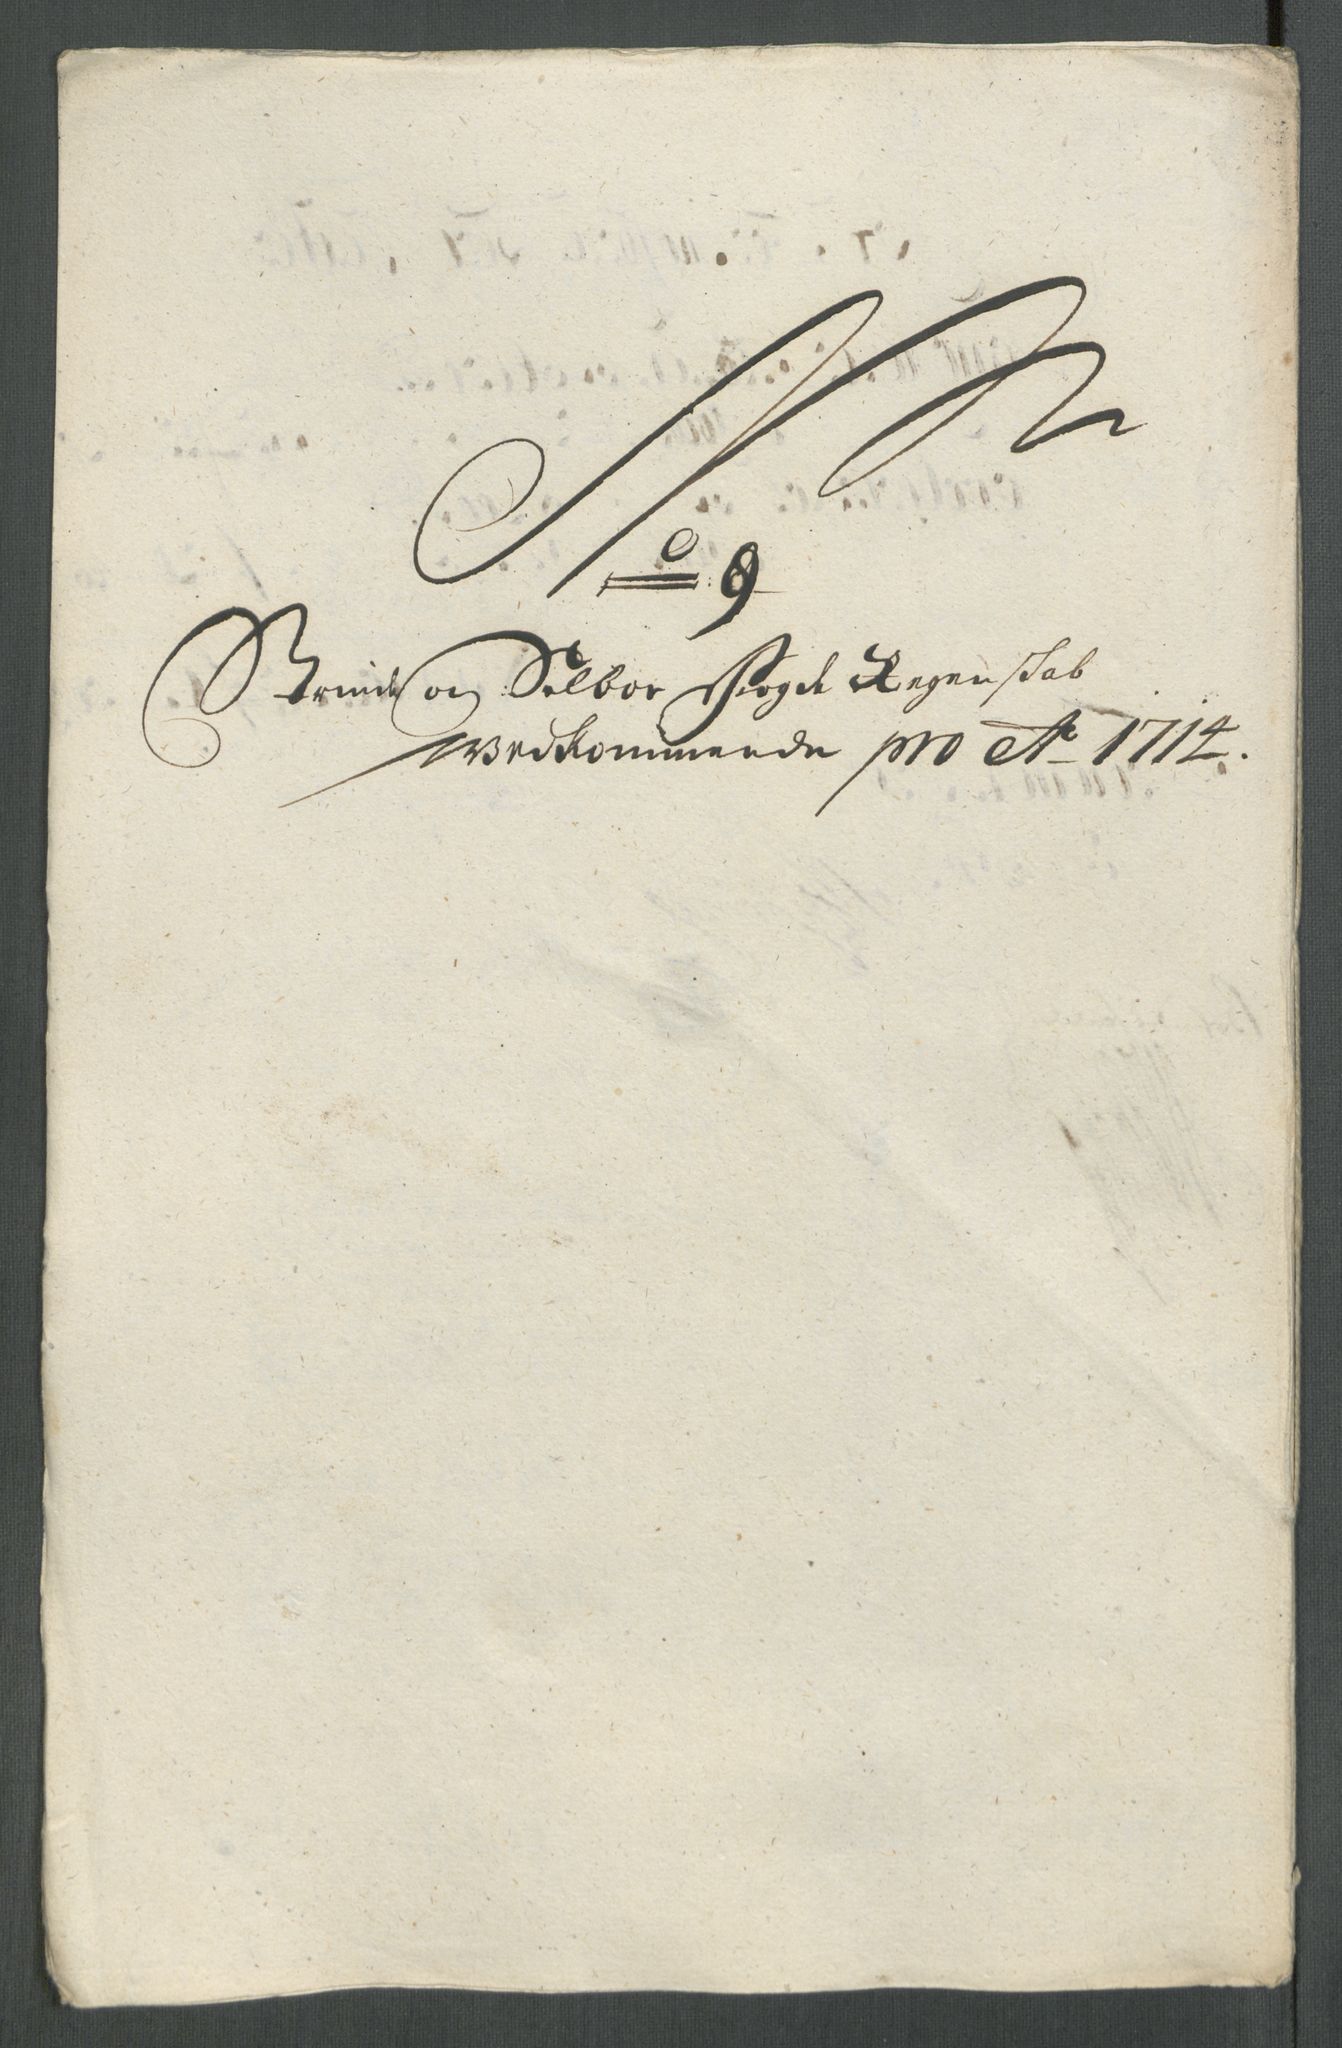 No 9
Strinde og Selboe Fogde Regenskab
Vedkommende pro Ao 1714.